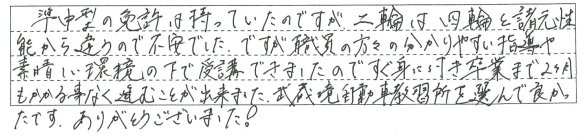 準中型の免許は持っていたのですが二輪は四輪と諸元性
能から違うので不安でした ですが職員の方々の分かりやすい指導や
素晴しい環境の下で受講できましたのですぐ身に付き卒業まで2ヶ月
もかかる事なく進むことが出来ました.武蔵境自動車教習所を選んで良かっ
たです.ありがとうございました!